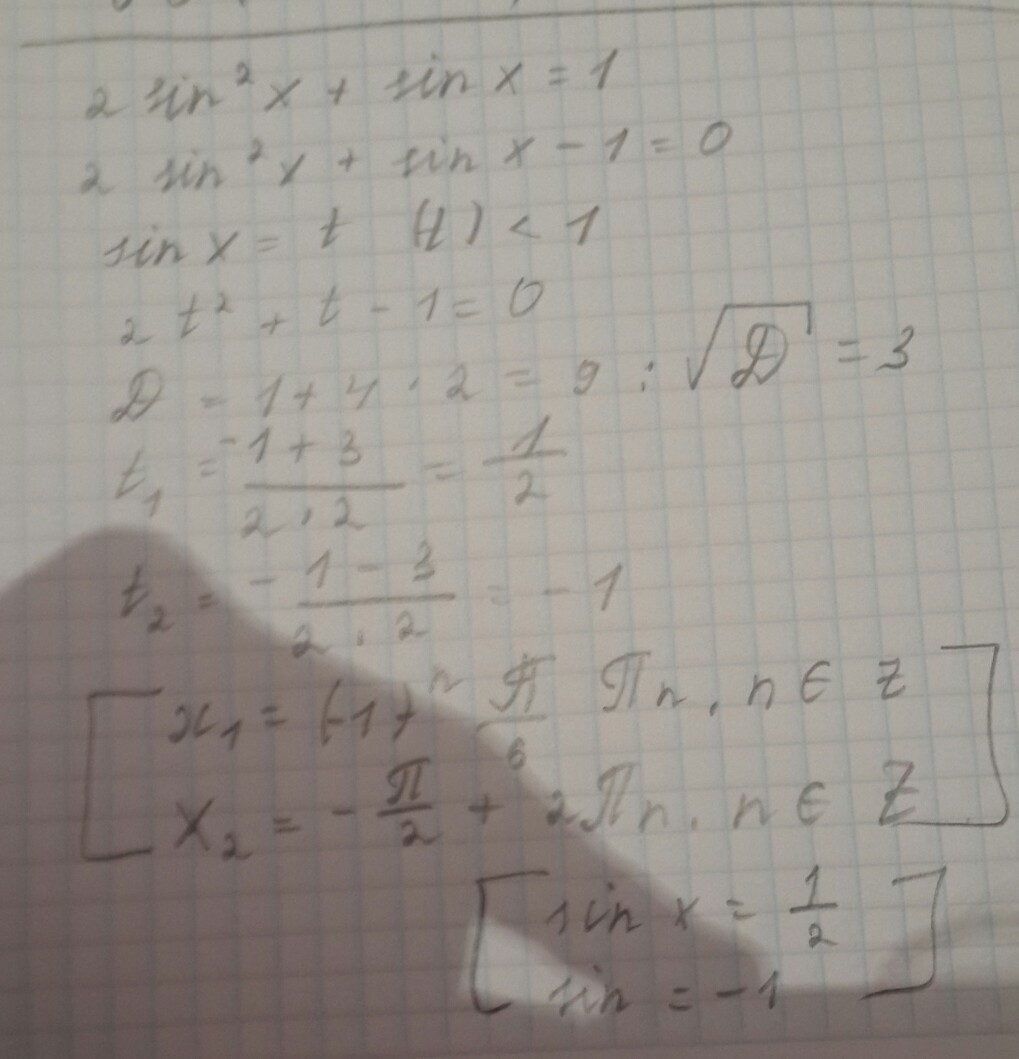 2 sin²x + sin x = 1
2 sin²x + sin x - 1 = 0
sin x = t (t) < 1
2t² + t - 1 = 0
D = 1 + 4 · 2 = 9 ; √D = 3
t₁ = (-1 + 3)/(2 · 2) = 1/2
t₂ = (-1 - 3)/(2 · 2) = -1
[ x₁ = (-1)ⁿ π/6 πn, n ∈ Z ]
[ x₂ = -π/2 + 2πn, n ∈ Z ]
[ sin x = 1/2 ]
[ sin = -1 ]